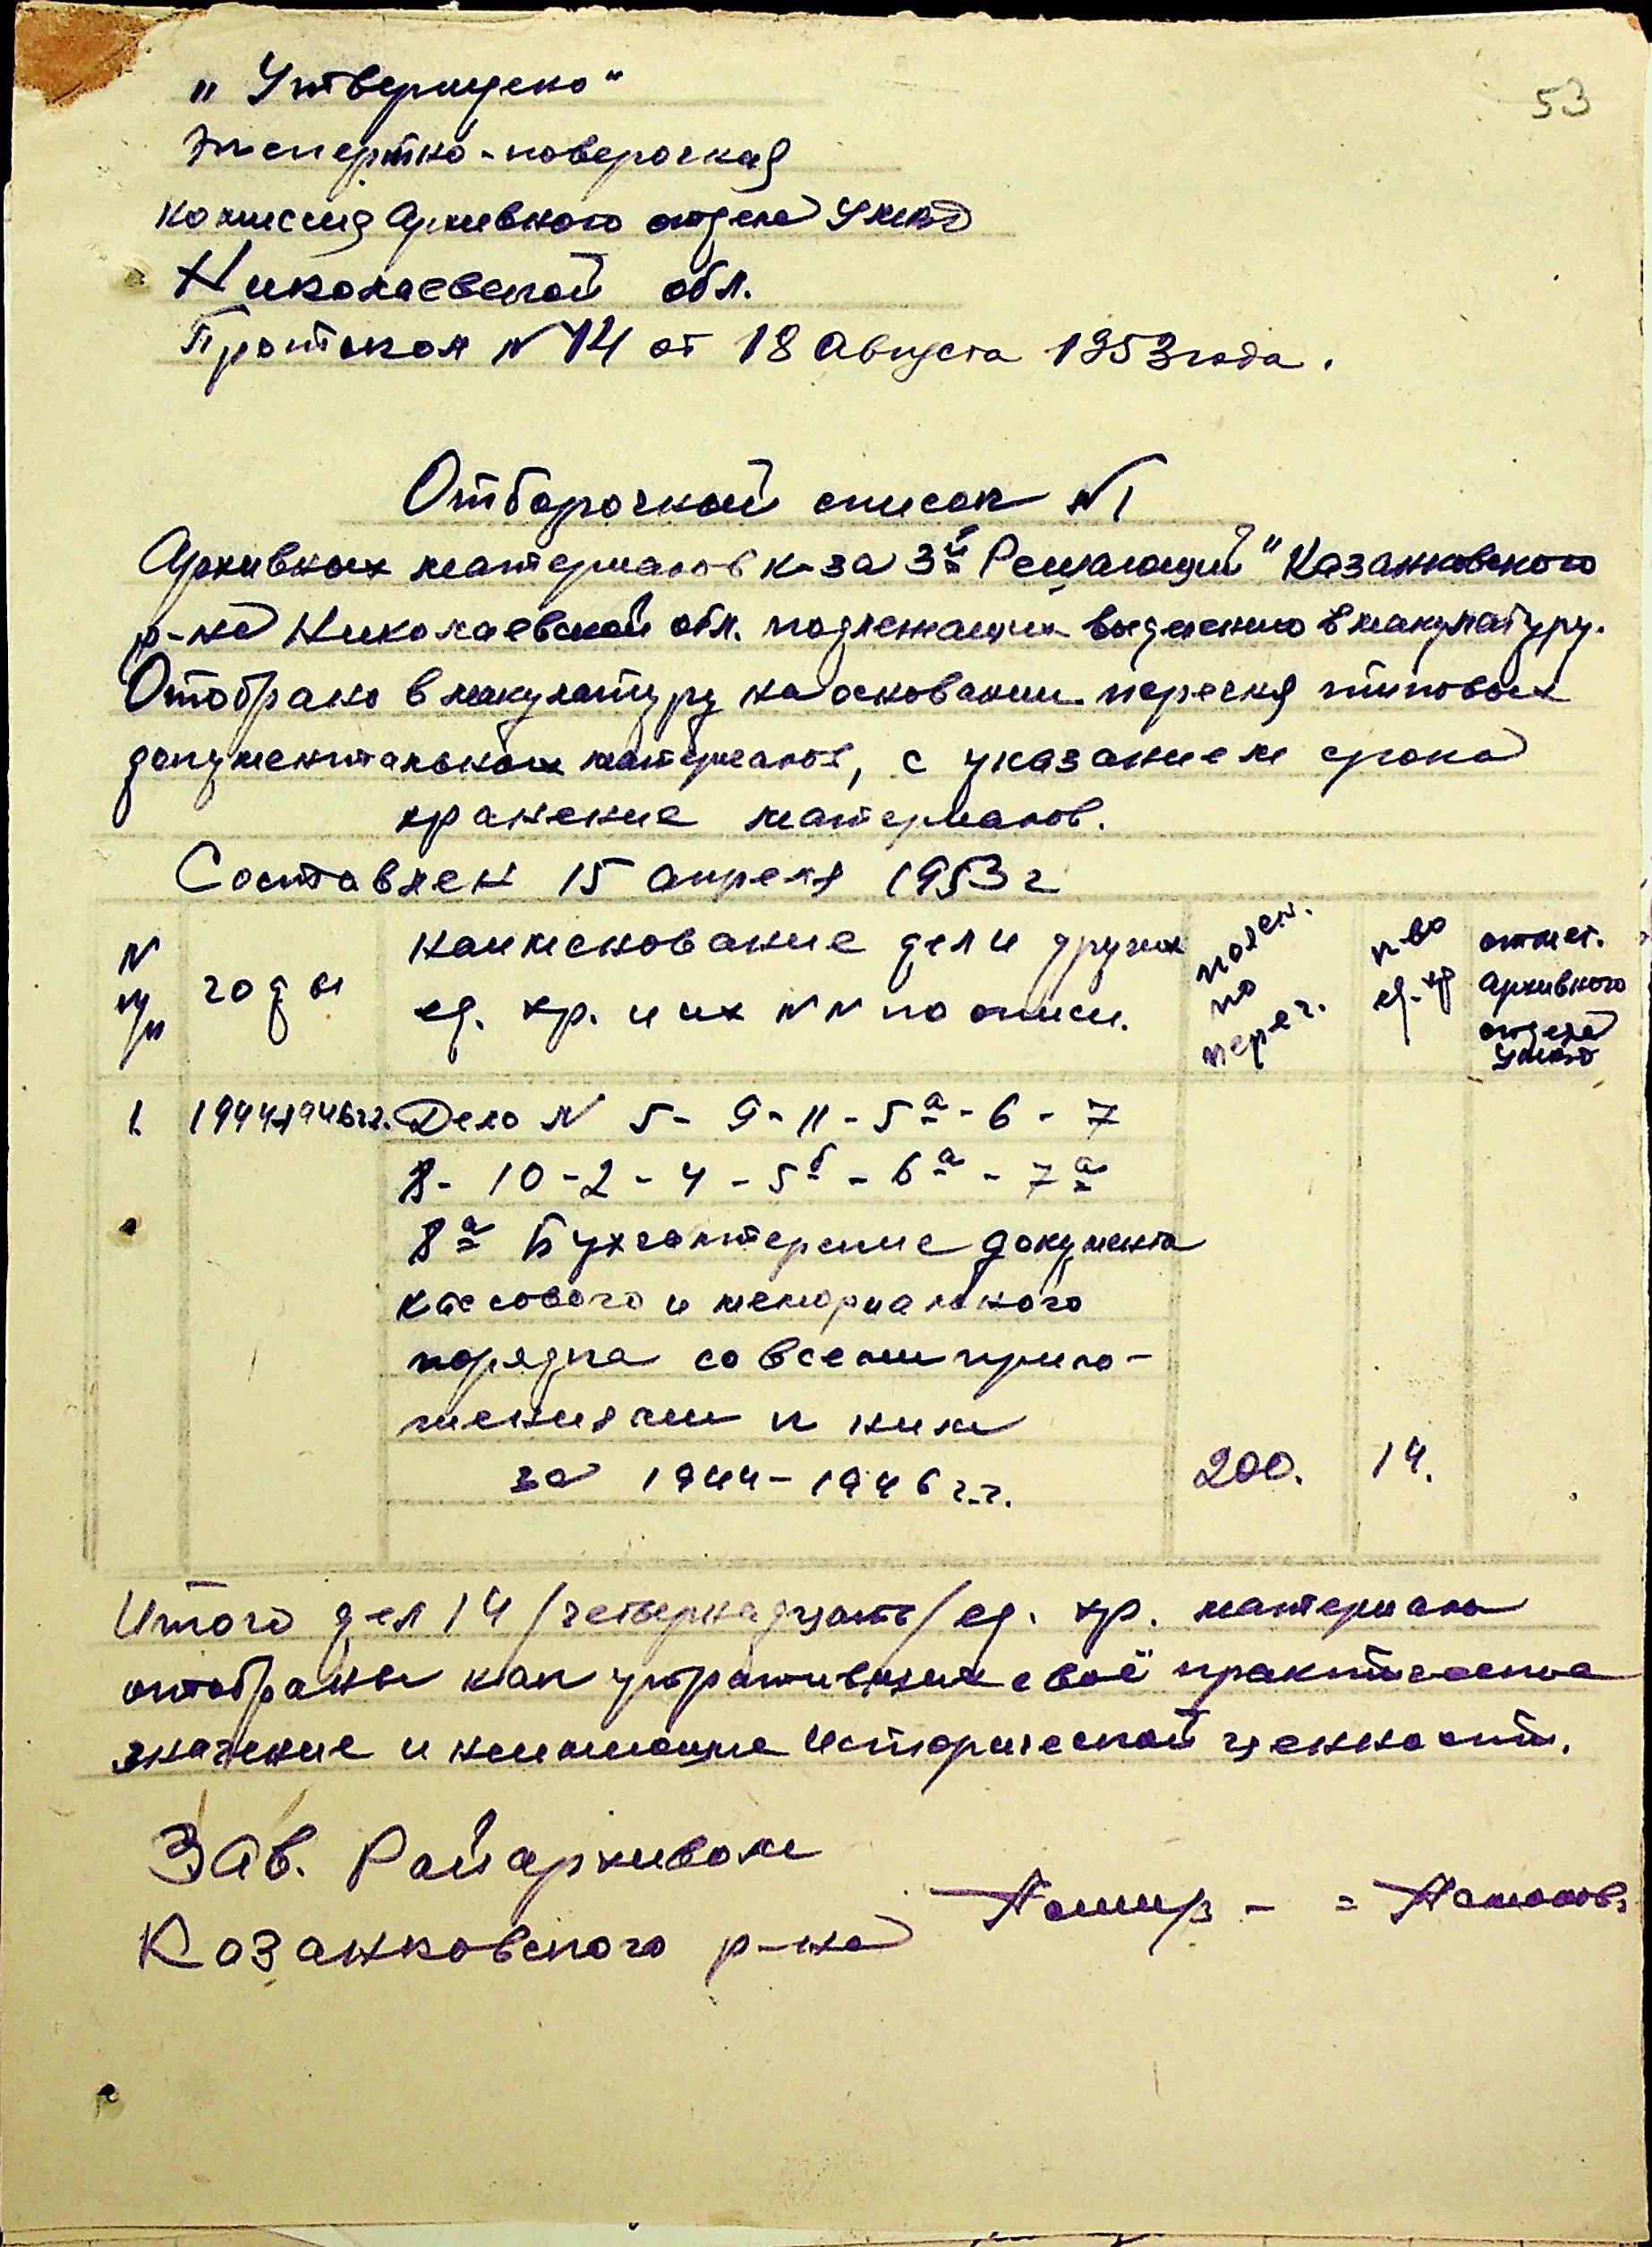 53
„Утверждено“
Экспертно-поверочная
комиссия Архивного отдела УМВД
Николаевской обл.
Протокол N 14 от 18 Августа 1953 года.
Отборочный список N 1
Архивных материалов к-за 3й Решающий" Казанковского
р-на Николаевской обл. подлежащих выделению в макулатуру.
Отобрано в макулатуру на основании перечня типовых
документальных материалов, с указанием срока
хранение материалов.
Составлен 15 апреля 1953 г
N п/п
годы
наименование дел и других
ед. хр. и их NN по описи.
полож. по переч.
к-во ед.-хр
отмет. Архивного отдела УМВД
1. 1944-1946гг. Дело N 5- 9- 11- 5а- 6- 7
8- 10- 2- 4- 5б- 6а- 7а
8а Бухгалтерские документа
кассового и мемориального
порядка со всеми прило-
жениями к ним
за 1944-1946 г.г. 200. 14.
Итого дел 14 /четырнадцать/ ед. хр. материалы
отобраны как утратившия своё практическа
значение и неимеющие Исторической ценности.
Зав. Райархивом
Казанковского р-на